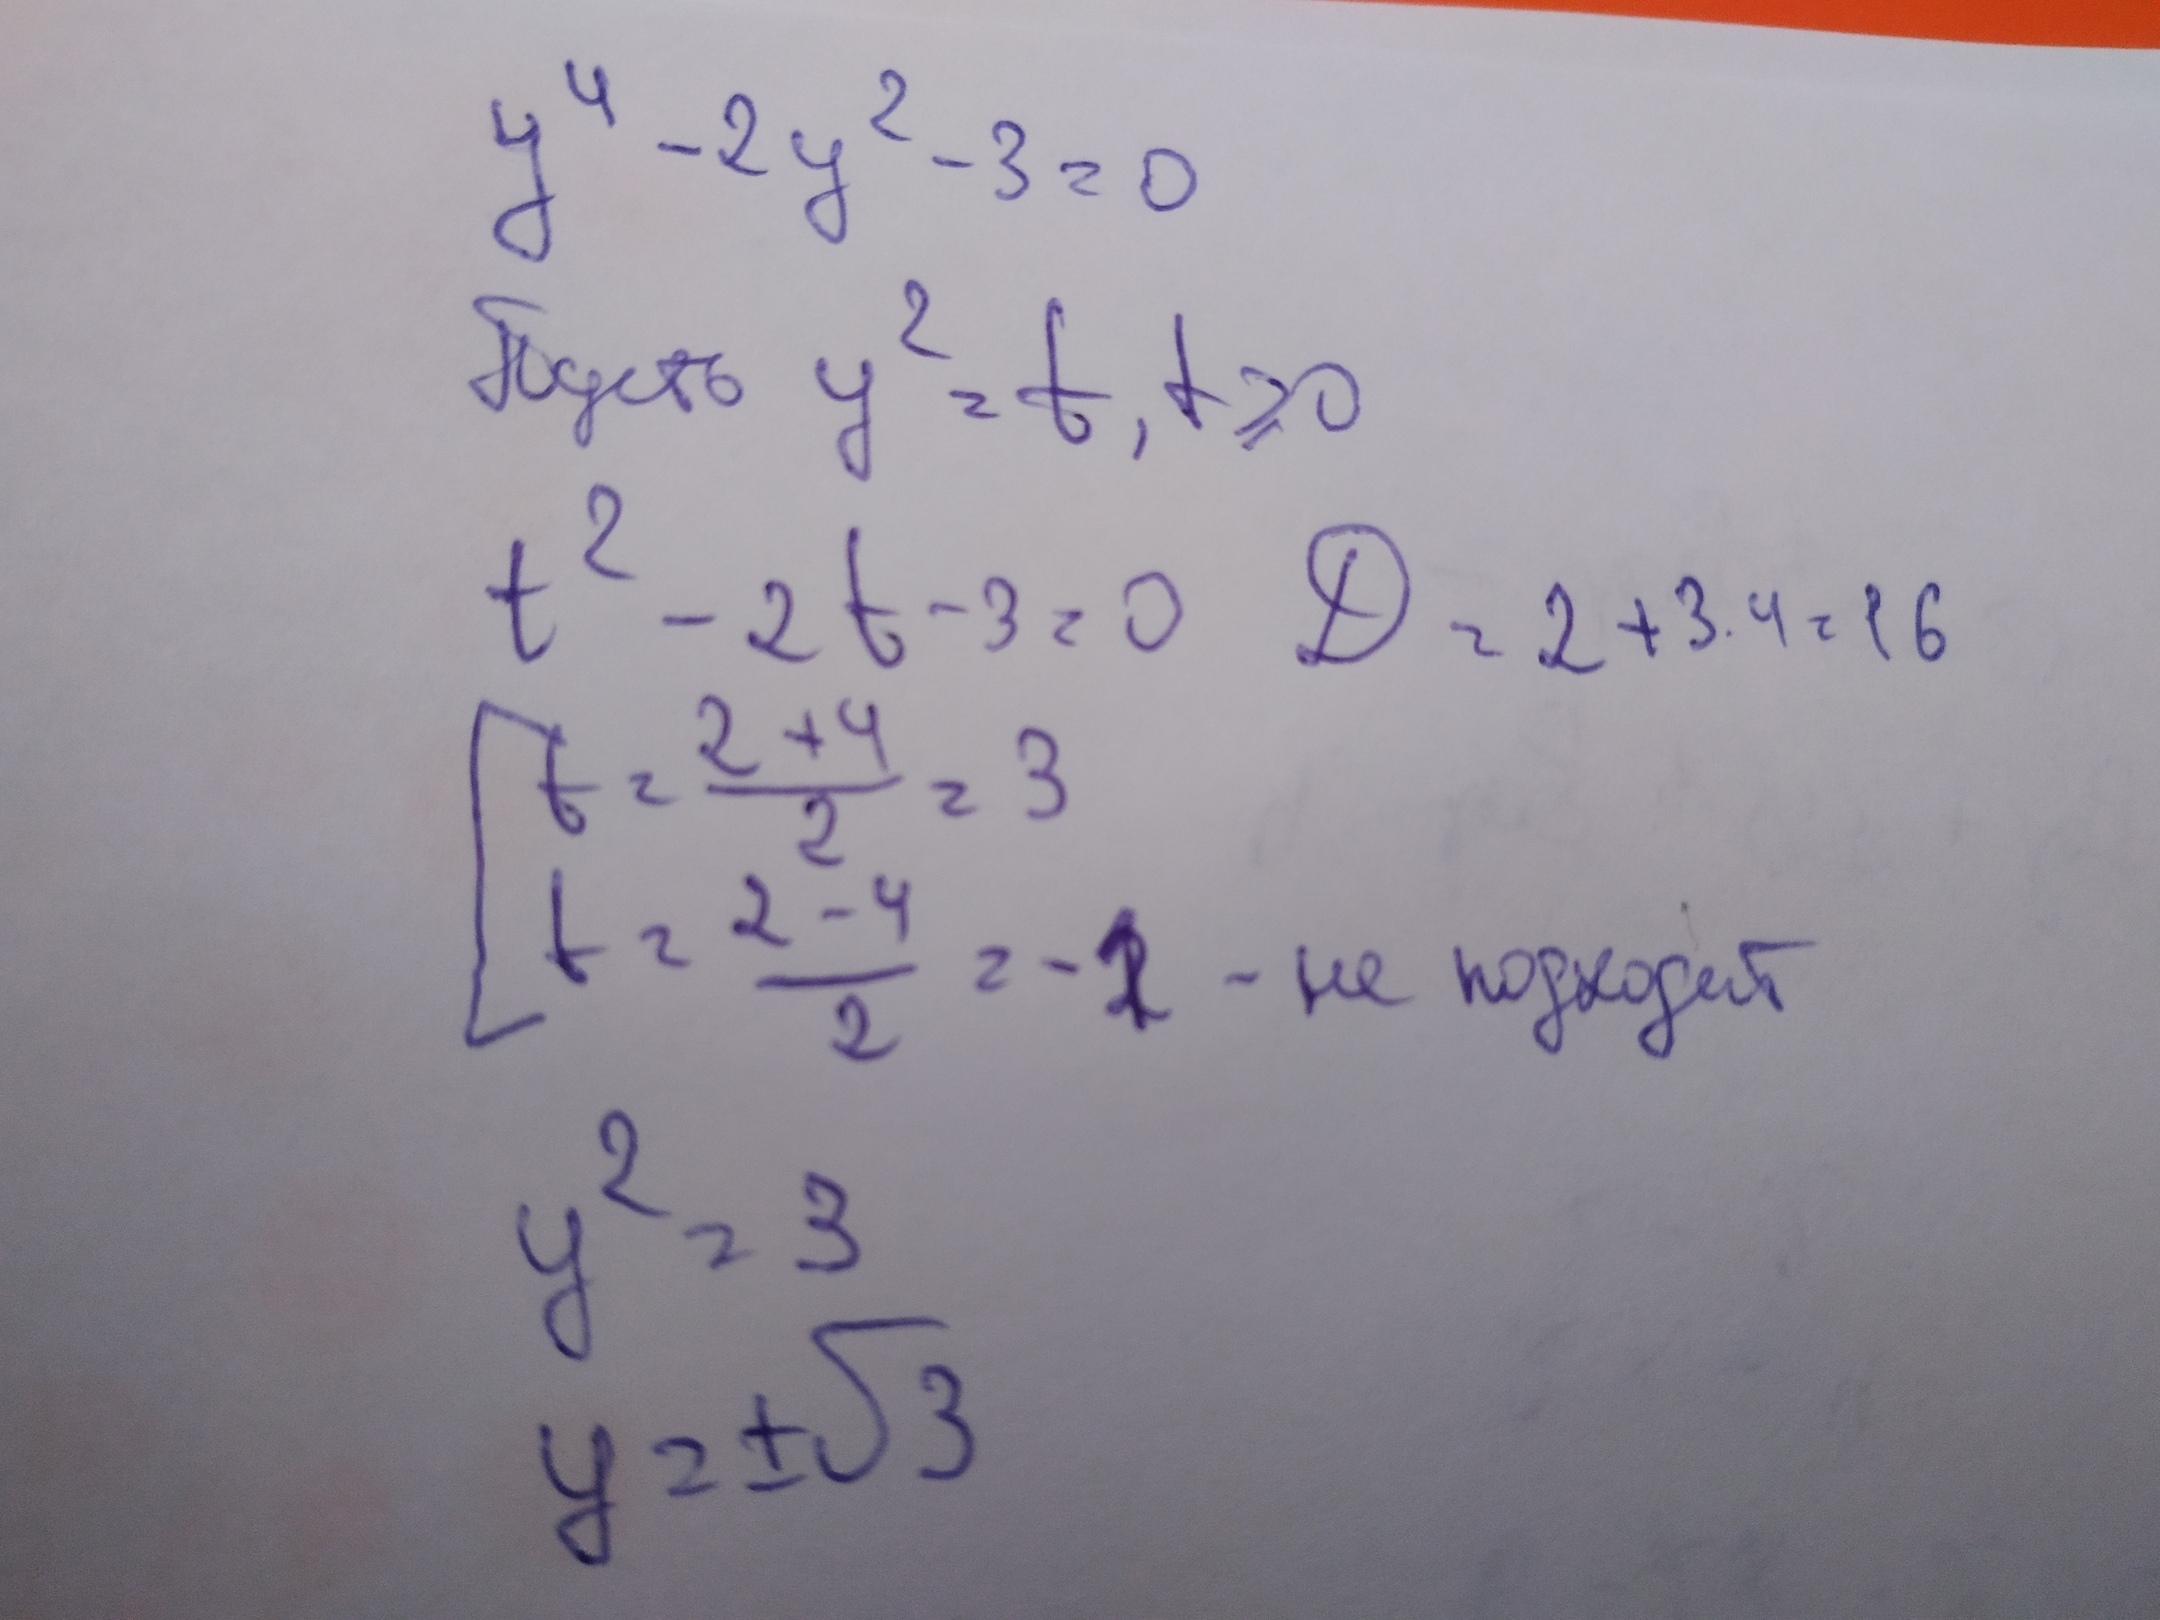 y⁴ - 2y² - 3 = 0
Пусть y² = t, t ⩾ 0
t² - 2t - 3 = 0 D = 2 + 3·4 = 16
[ t = (2+4)/2 = 3
t = (2-4)/2 = -1 - не подходит
y² = 3
y = ±√3